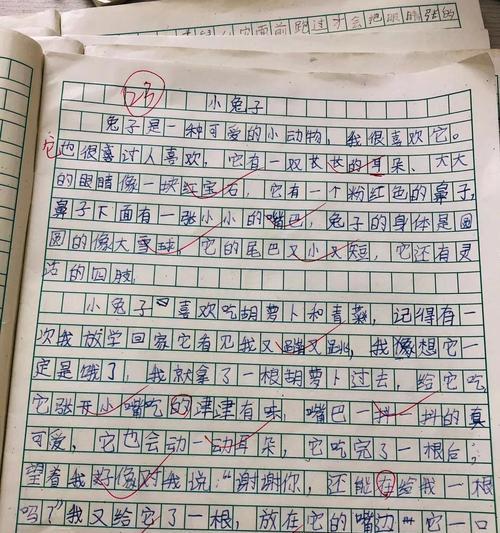 它面前跑过才会把眼睛张的
23
小兔子
兔子是一种可爱的小动物，我很喜欢它。
它也很喜讨人喜欢，它有一双长长的耳朵、大大
的眼睛像一块红宝石，它有一个粉红色的鼻子，
鼻子下面有一张小小的嘴巴，兔子的身体是圆
圆的像大雪球，它的尾巴又小又短，它还有灵
活的四肢。
小兔子喜欢吃胡萝卜和青菜，记得有一
次我放学回家它看见我又蹦又跳，我像想它一
定是饿了，我就拿了一根胡萝卜过去，给它吃
它张开小嘴吃的津津有味，嘴巴一抖一抖的真
可爱，它也会动一动耳朵，它吃完了一根后；
望着我好像对我说：“谢谢你，还能在给我一根
吗？”我又给它了一根，放在它的嘴边…它一口